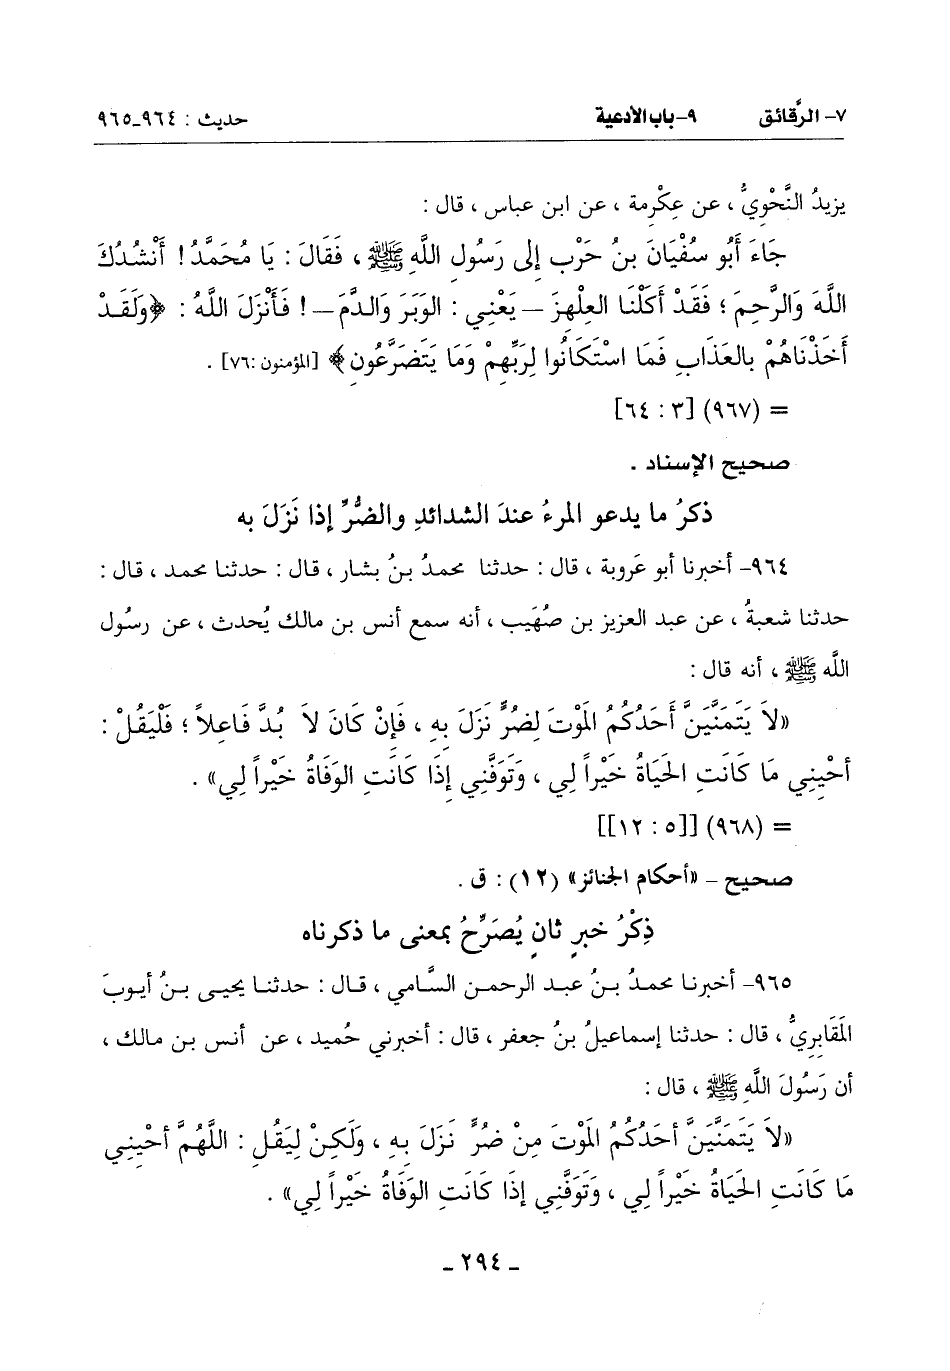 ٧- الرَّقائق ٩- باب الأدعية حديث : ٩٦٤-٩٦٥
يزيدُ النَّحْويُّ ، عن عِكْرمة ، عن ابن عباس ، قال :
جَاءَ أَبُو سُفْيَانَ بنُ حَرْبٍ إِلى رَسُولِ اللَّهِ ﷺ ، فَقَالَ : يَا مُحَمَّدُ ! أَنْشُدُكَ
اللَّهَ وَالرَّحِمَ ؛ فَقَدْ أَكَلْنَا العِلْهِزَ – يَعْنِي : الوَبَرَ وَالدَّمَ – ! فَأَنْزَلَ اللَّهُ : ﴿وَلَقَدْ
أَخَذْنَاهُمْ بالعَذَابِ فَمَا اسْتَكَانُوا لِرَبِّهِمْ وَمَا يَتَضَرَّعُونَ﴾ [المؤمنون :٧٦] .
= (٩٦٧) [٣ : ٦٤]
صحيح الإسناد .
ذكرُ ما يدعو المرءُ عندَ الشدائدِ والضُّرِّ إذا نَزَلَ به
٩٦٤- أخبرنا أبو عَروبة ، قال : حدثنا محمدُ بنُ بشار ، قال : حدثنا محمد ، قال :
حدثنا شعبةُ ، عن عبد العزيز بن صُهَيب ، أنه سمع أنس بن مالك يُحدث ، عن رسُول
اللَّه ﷺ ، أنه قال :
«لاَ يَتَمَنَّيَنَّ أَحَدُكُمُ المَوْتَ لِضُرٍّ نَزَلَ بِهِ ، فَإِنْ كَانَ لاَ بُدَّ فَاعِلاً ؛ فَلْيَقُلْ :
أَحْيِنِي مَا كَانَتِ الحَيَاةُ خَيْراً لِي ، وَتَوَفَّنِي إِذَا كَانَتِ الوَفَاةُ خَيْراً لِي» .
= (٩٦٨) [[٥ : ١٢]]
صحيح – «أحكام الجنائز» (١٢) : ق .
ذِكْرُ خبرٍ ثانٍ يُصَرِّحُ بمعنى ما ذكرناه
٩٦٥- أخبرنا محمدُ بنُ عبد الرحمن السَّامي ، قال : حدثنا يحيى بنُ أيوبَ
المَقَابِريُّ ، قال : حدثنا إسماعيلُ بنُ جعفر ، قال : أخبرني حُميد ، عن أنس بن مالك ،
أن رَسُولَ اللَّهِ ﷺ ، قال :
«لاَ يَتَمَنَّيَنَّ أَحَدُكُمُ المَوْتَ مِنْ ضُرٍّ نَزَلَ بِهِ ، وَلَكِنْ لِيَقُلِ : اللَّهُمَّ أَحْيِنِي
مَا كَانَتِ الحَيَاةُ خَيْراً لِي ، وَتَوَفَّنِي إِذَا كَانَتِ الوَفَاةُ خَيْراً لِي» .
- ٢٩٤ -